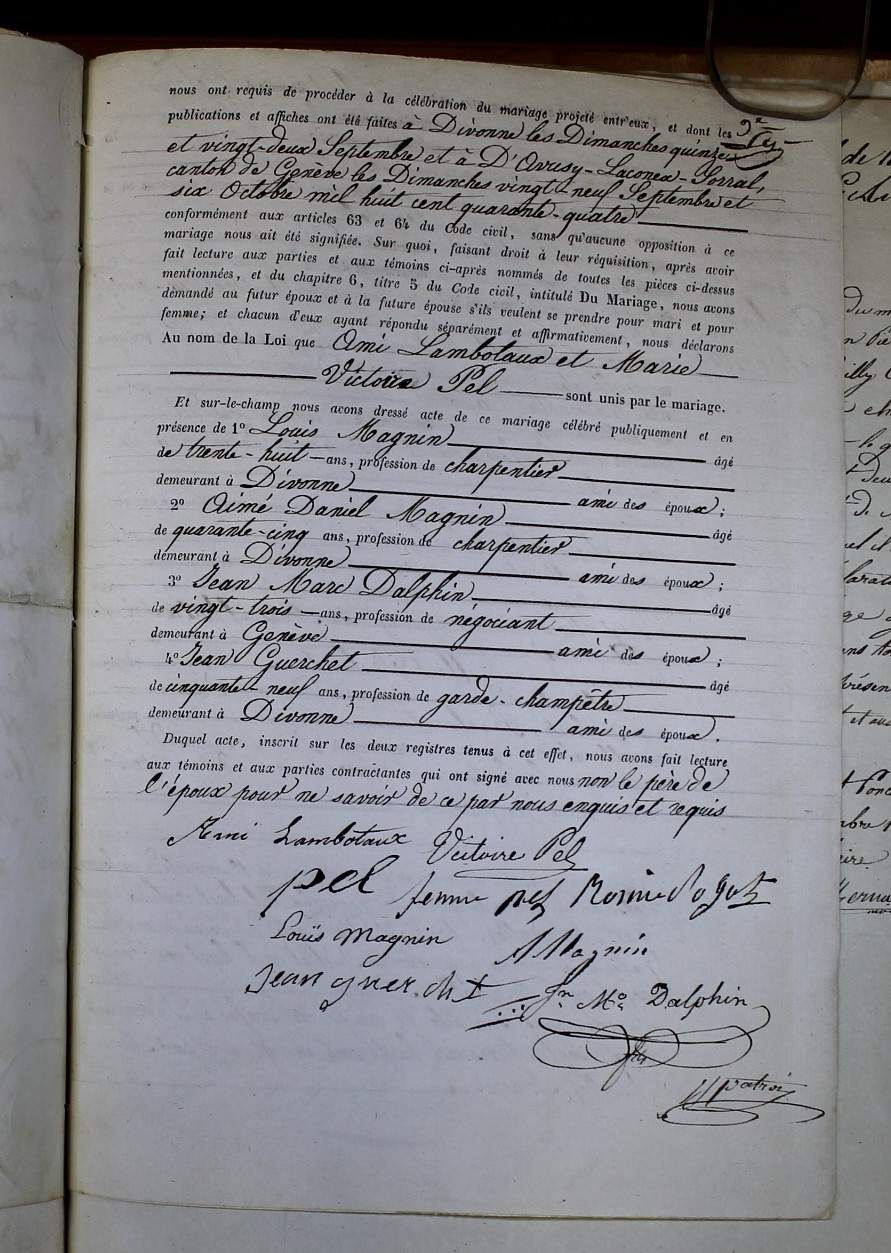 nous ont requis de procéder à la célébration du mariage projeté entr'eux, et dont les
publications et affiches ont été faites à Divonne les Dimanches quinze
et vingt-deux Septembre et à D'Avusy-Laconex-Sorral,
canton de Genève les Dimanches vingt-neuf Septembre et
six Octobre mil huit cent quarante-quatre
conformément aux articles 63 et 64 du Code civil, sans qu'aucune opposition à ce
mariage nous ait été signifiée. Sur quoi, faisant droit à leur réquisition, après avoir
fait lecture aux parties et aux témoins ci-après nommés de toutes les pièces ci-dessus
mentionnées, et du chapitre 6, titre 5 du Code civil, intitulé Du Mariage, nous avons
demandé au futur époux et à la future épouse s'ils veulent se prendre pour mari et pour
femme; et chacun d'eux ayant répondu séparément et affirmativement, nous déclarons
Au nom de la Loi que Ami Lambotaux et Marie
Victoire Pel sont unis par le mariage.
Et sur-le-champ nous avons dressé acte de ce mariage célébré publiquement et en
présence de 1° Louis Magnin âgé
de trente-huit ans, profession de charpentier
demeurant à Divonne ami des époux;
2° Aimé Daniel Magnin âgé
de quarante-cinq ans, profession de charpentier
demeurant à Divonne ami des époux;
3° Jean Marc Dalphin âgé
de vingt-trois ans, profession de négociant
demeurant à Genève ami des époux;
4° Jean Guerchet âgé
de cinquante-neuf ans, profession de garde-champêtre
demeurant à Divonne ami des époux.
Duquel acte, inscrit sur les deux registres tenus à cet effet, nous avons fait lecture
aux témoins et aux parties contractantes qui ont signé avec nous non le père de
l'époux pour ne savoir de ce par nous enquis et requis
Ami Lambotaux Victoire Pel
pel femme pel
Louis Magnin A Magnin
Jean guerchet Jn Mc Dalphin